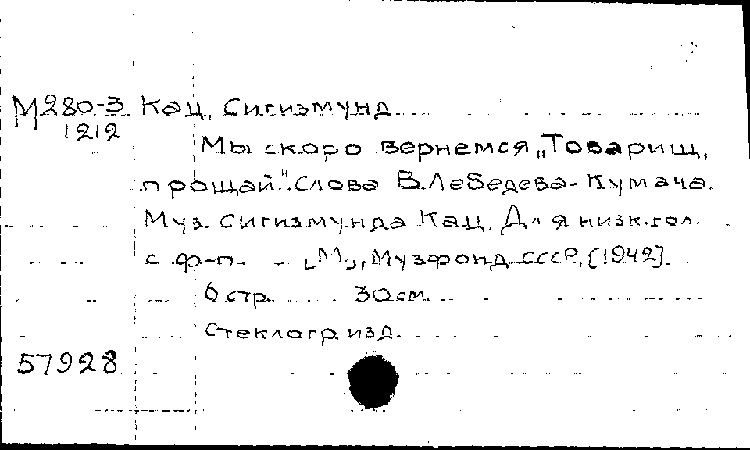 М280-3 Кац, Сигизмунд
1212
Мы скоро вернемся „Товарищ,
прощай". Слова В.Лебедева-Кумача.
Муз. Сигизмунда Кац. Для низк.гол.
с ф-п. - [М], Музфонд СССР, [1942].
6 стр. 30 см.
Стеклогр. изд.
57928